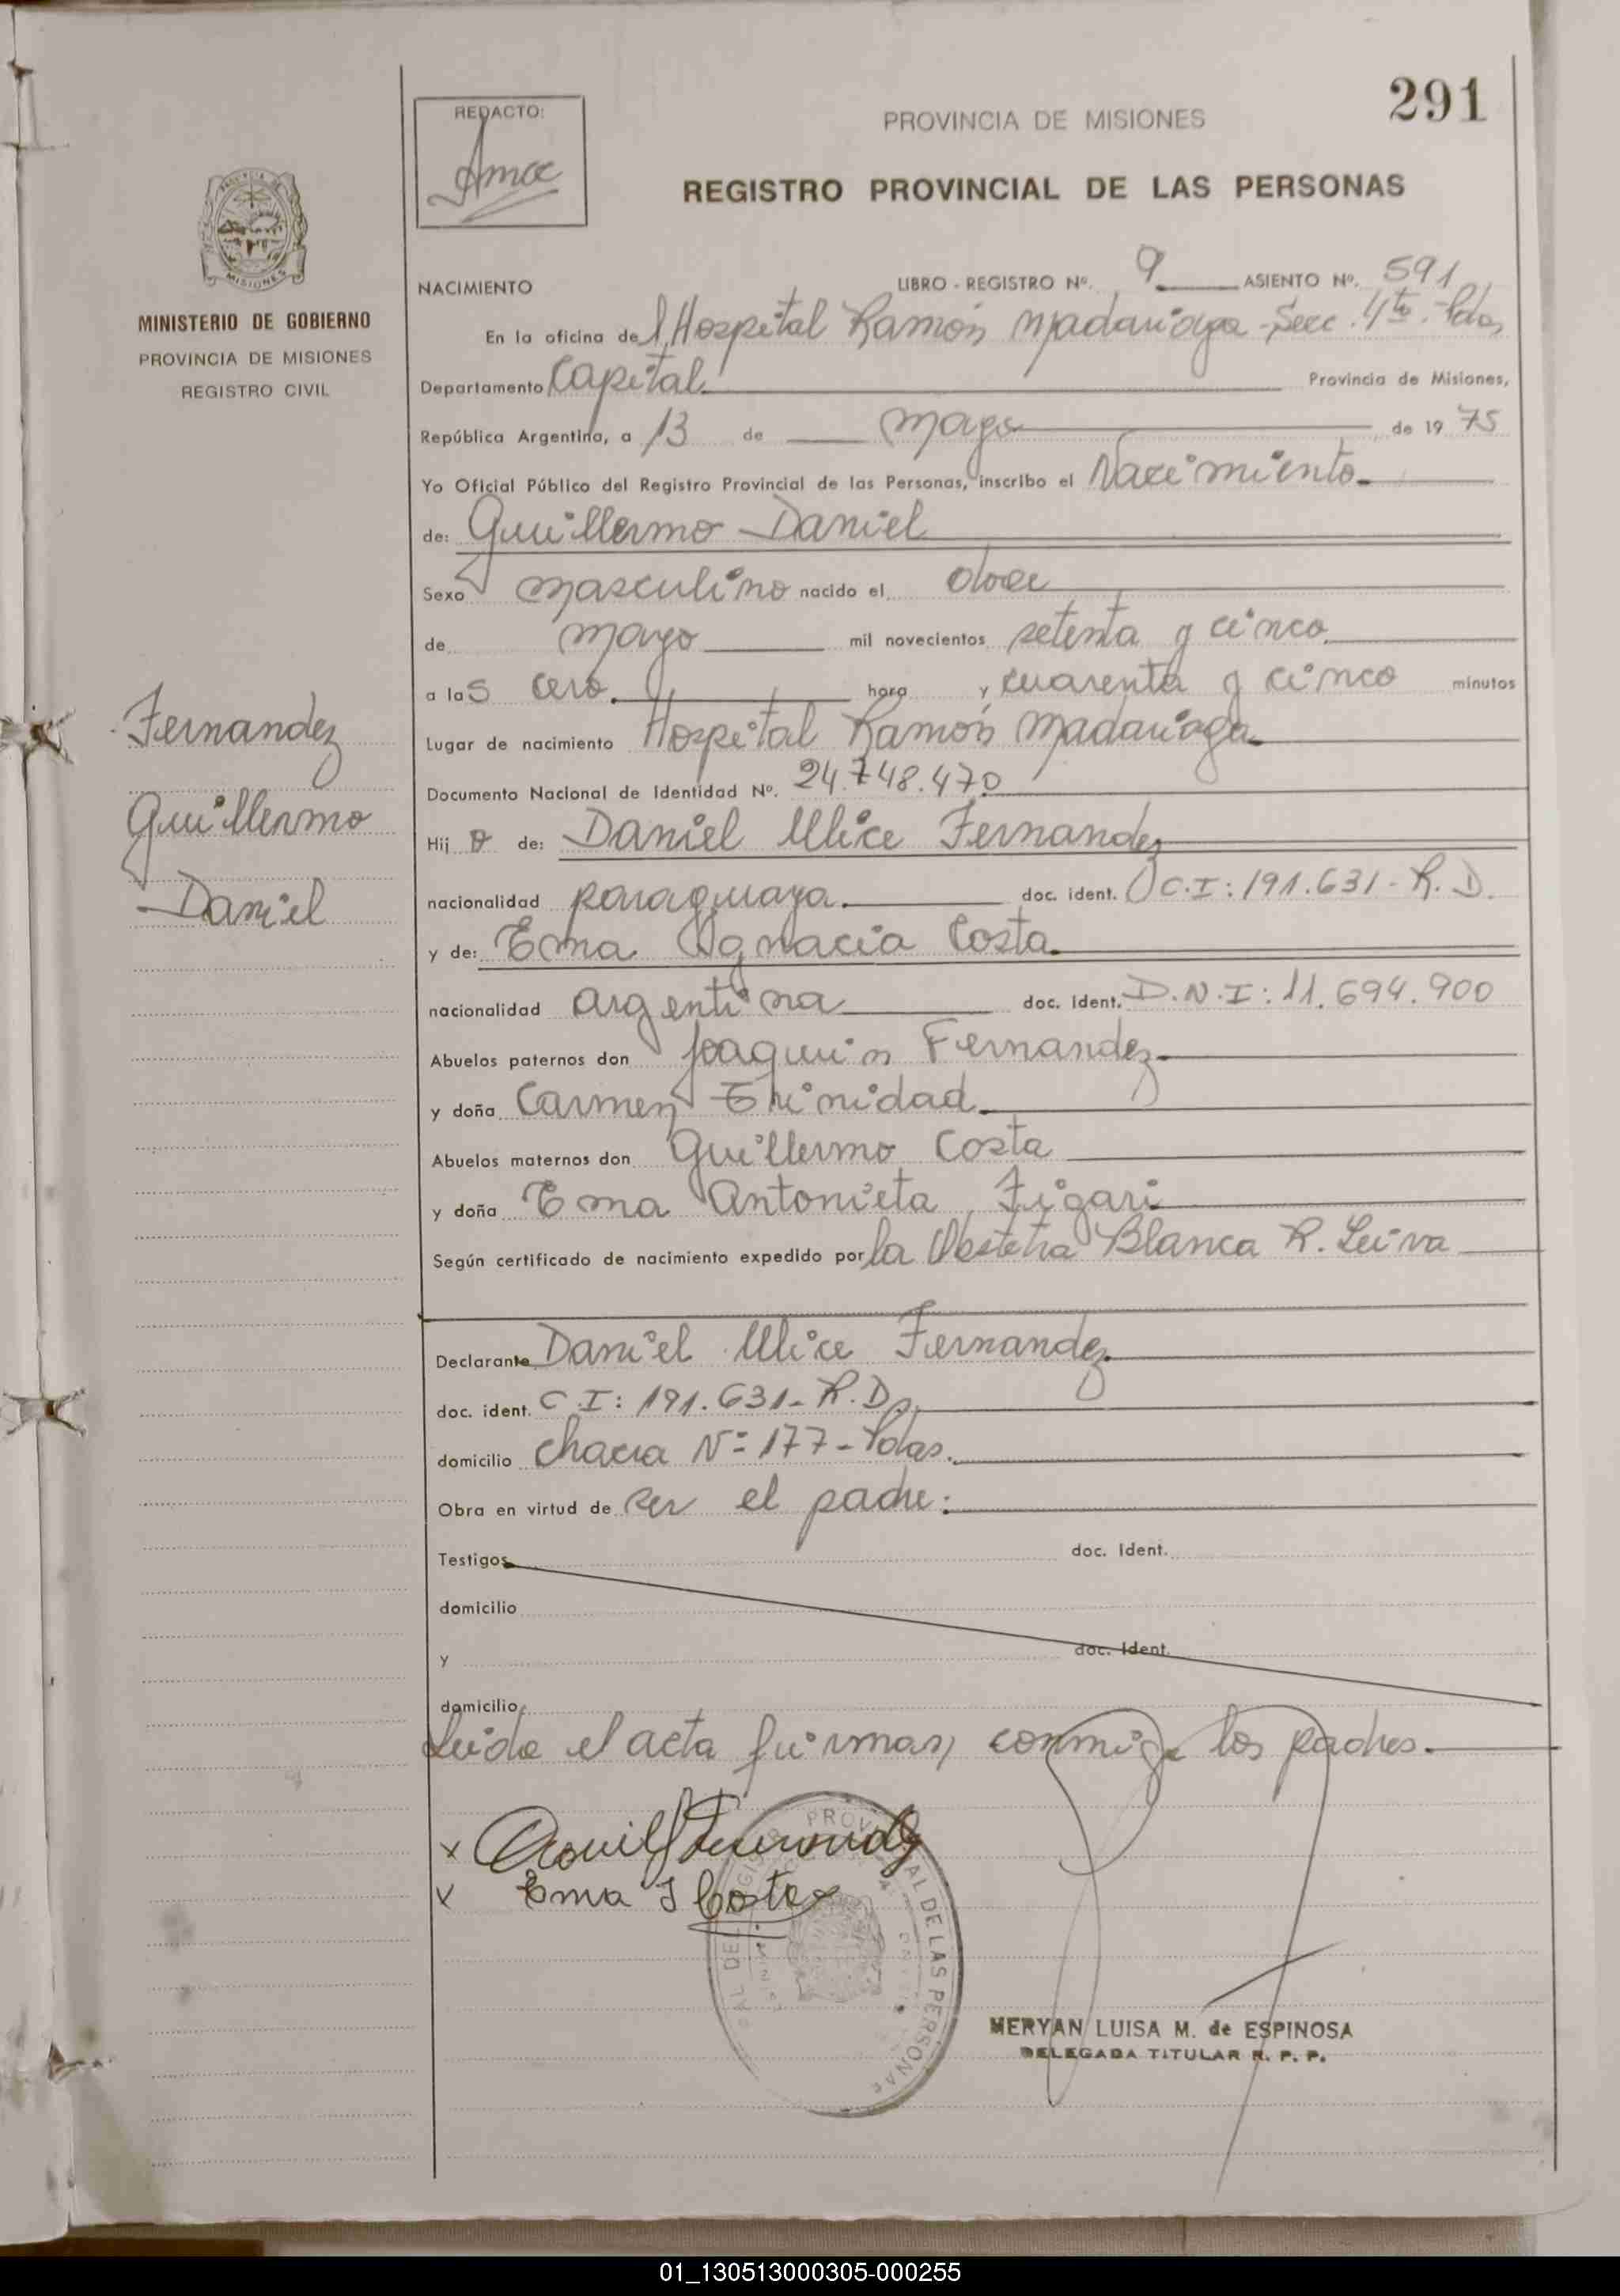 291
REDACTO:
PROVINCIA DE MISIONES
REGISTRO PROVINCIAL DE LAS PERSONAS
MISIONES
MINISTERIO DE GOBIERNO
PROVINCIA DE MISIONES
REGISTRO CIVIL
NACIMIENTO LIBRO - REGISTRO Nº. 9 ASIENTO Nº. 591
En la oficina del Hospital Ramón Madariaga - Secc. 4ta. - Pdas
Departamento Capital. Provincia de Misiones,
República Argentina, a 13 de mayo de 1975
Yo Oficial Público del Registro Provincial de las Personas, inscribo el Nacimiento.
de: Guillermo Daniel
Sexo masculino nacido el doce
de mayo mil novecientos setenta y cinco
a las cero. hora y cuarenta y cinco minutos
Lugar de nacimiento Hospital Ramón Madariaga
Documento Nacional de Identidad Nº. 24.748.470
Fernandez
Guillermo
Daniel
Hijo de: Daniel Ulice Fernandez
nacionalidad paraguaya. doc. ident. C.I: 191.631 - R.D.
y de: Ema Ignacia Costa.
nacionalidad argentina doc. ident. D.N.I: 11.694.900
Abuelos paternos don Joaquin Fernandez
y doña Carmen Trinidad.
Abuelos maternos don Guillermo Costa
y doña Ema Antonieta Figari
Según certificado de nacimiento expedido por la Obstetra Blanca R. Leiva
Declarante Daniel Ulice Fernandez
doc. ident. C.I: 191.631 - R.D.
domicilio Chacra Nº 177 - Pdas.
Obra en virtud de ser el padre.
Testigos doc. Ident.
domicilio
y doc. Ident.
domicilio
Leida el acta firman conmigo los padres.
x Daniel Fernandez
x Ema I Costa
MERYAN LUISA M. de ESPINOSA
DELEGADA TITULAR R. P. P.
01_130513000305-000255